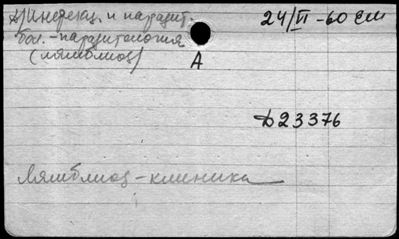 Д) Инфекц. и паразит. 24/VI-60 ем
бол. - паразитология
(лямблиоз)
А
Д23376
Лямблиоз - клиника